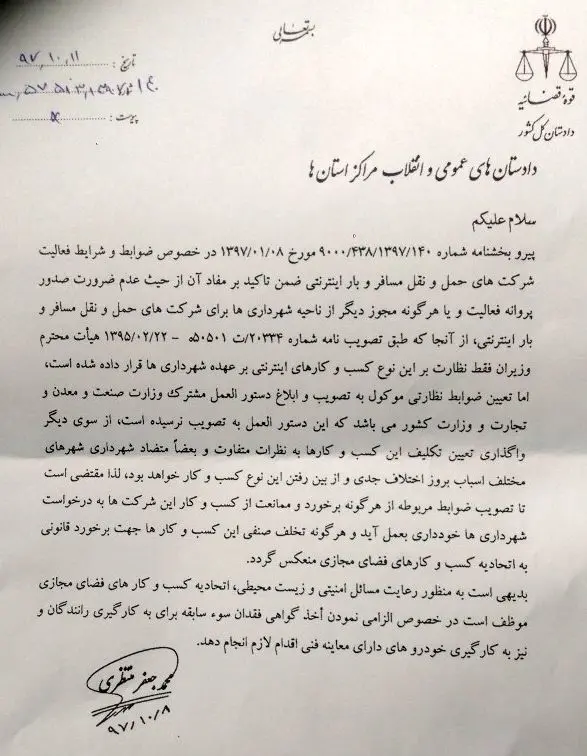 بسمه تعالی
قوه قضائیه
دادستان کل کشور
تاریخ: ۹۷,۱۰,۱۱
پیوست:
دادستان های عمومی و انقلاب مراکز استان ها
سلام علیکم
پیرو بخشنامه شماره ۹۰۰۰/۴۳۸/۱۳۹۷/۱۴۰ مورخ ۱۳۹۷/۰۱/۰۸ در خصوص ضوابط و شرایط فعالیت
شرکت های حمل و نقل مسافر و بار اینترنتی ضمن تاکید بر مفاد آن از حیث عدم ضرورت صدور
پروانه فعالیت و یا هرگونه مجوز دیگر از ناحیه شهرداری ها برای شرکت های حمل و نقل مسافر و
بار اینترنتی، از آنجا که طبق تصویب نامه شماره ۲۰۳۳۴/ت ۵۰۵۰۱ه – ۱۳۹۵/۰۲/۲۲ هیأت محترم
وزیران فقط نظارت بر این نوع کسب و کارهای اینترنتی بر عهده شهرداری ها قرار داده شده است،
اما تعیین ضوابط نظارتی موکول به تصویب و ابلاغ دستور العمل مشترک وزارت صنعت و معدن و
تجارت و وزارت کشور می باشد که این دستور العمل به تصویب نرسیده است، از سوی دیگر
واگذاری تعیین تکلیف این کسب و کارها به نظرات متفاوت و بعضاً متضاد شهرداری شهرهای
مختلف اسباب بروز اختلاف جدی و از بین رفتن این نوع کسب و کار خواهد بود، لذا مقتضی است
تا تصویب ضوابط مربوطه از هرگونه برخورد و ممانعت از کسب و کار این شرکت ها به درخواست
شهرداری ها خودداری بعمل آید و هرگونه تخلف صنفی این کسب و کار ها جهت برخورد قانونی
به اتحادیه کسب و کارهای فضای مجازی منعکس گردد.
بدیهی است به منظور رعایت مسائل امنیتی و زیست محیطی، اتحادیه کسب و کار های فضای مجازی
موظف است در خصوص الزامی نمودن أخذ گواهی فقدان سوء سابقه برای به کارگیری رانندگان و
نیز به کارگیری خودرو های دارای معاینه فنی اقدام لازم انجام دهد.
محمد جعفر منتظری
۹۷,۱۰,۸